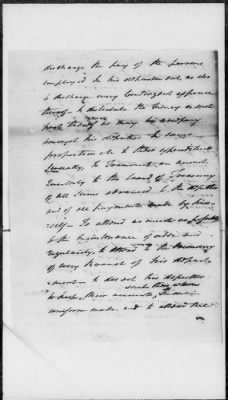 discharge the pay of the persons
employed in his department, as also
to discharge every Contingent expence
thereof to distribute the Money as such
parts thereof as may be necessary
amongst his deputies in large
proportion to their expenditures
Annually, to Transmit an account
to the board of Treasury
of all Sums advanced to the deputies
and of all payments made by him
self. To attend as much as possible
to the maintenance of order and
regularity, to attend to the
of every branch of his depart
ment to direct his deputies
to keep their accounts, in such
uniform mode and to attend that